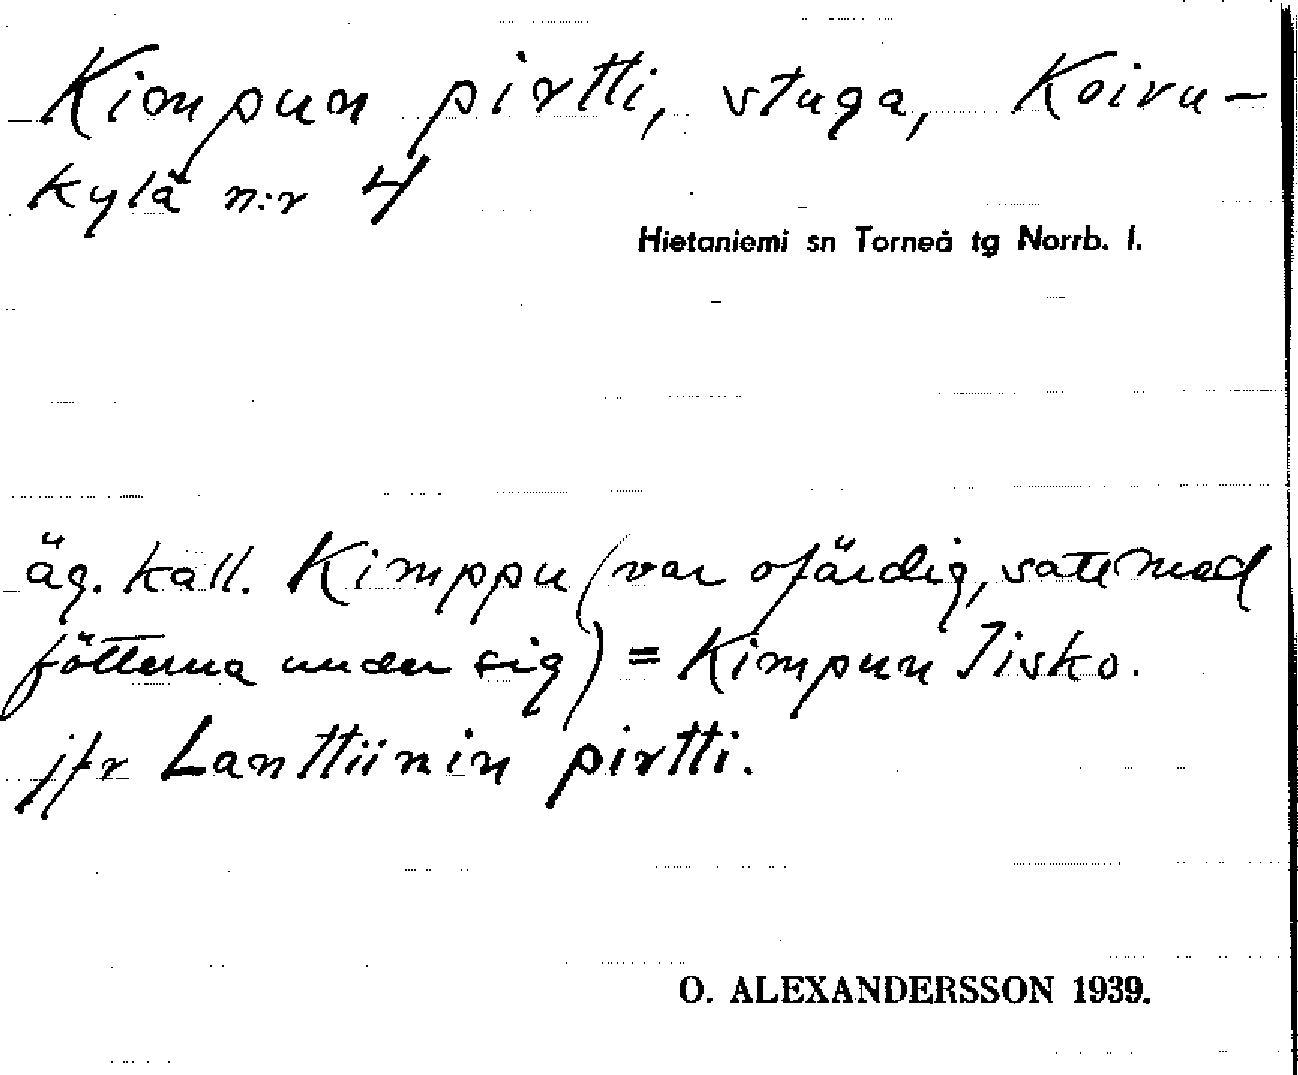 Kimpun pirtti, stuga, Koivu-
kylä n:r 4
Hietaniemi sn Torneå tg Norrb. l.
äg. kall. Kimppu (var ofärdig, satt med
fötterna under sig) = Kimpun Iisko.
jfr Lanttiinin pirtti.
O. ALEXANDERSSON 1939.